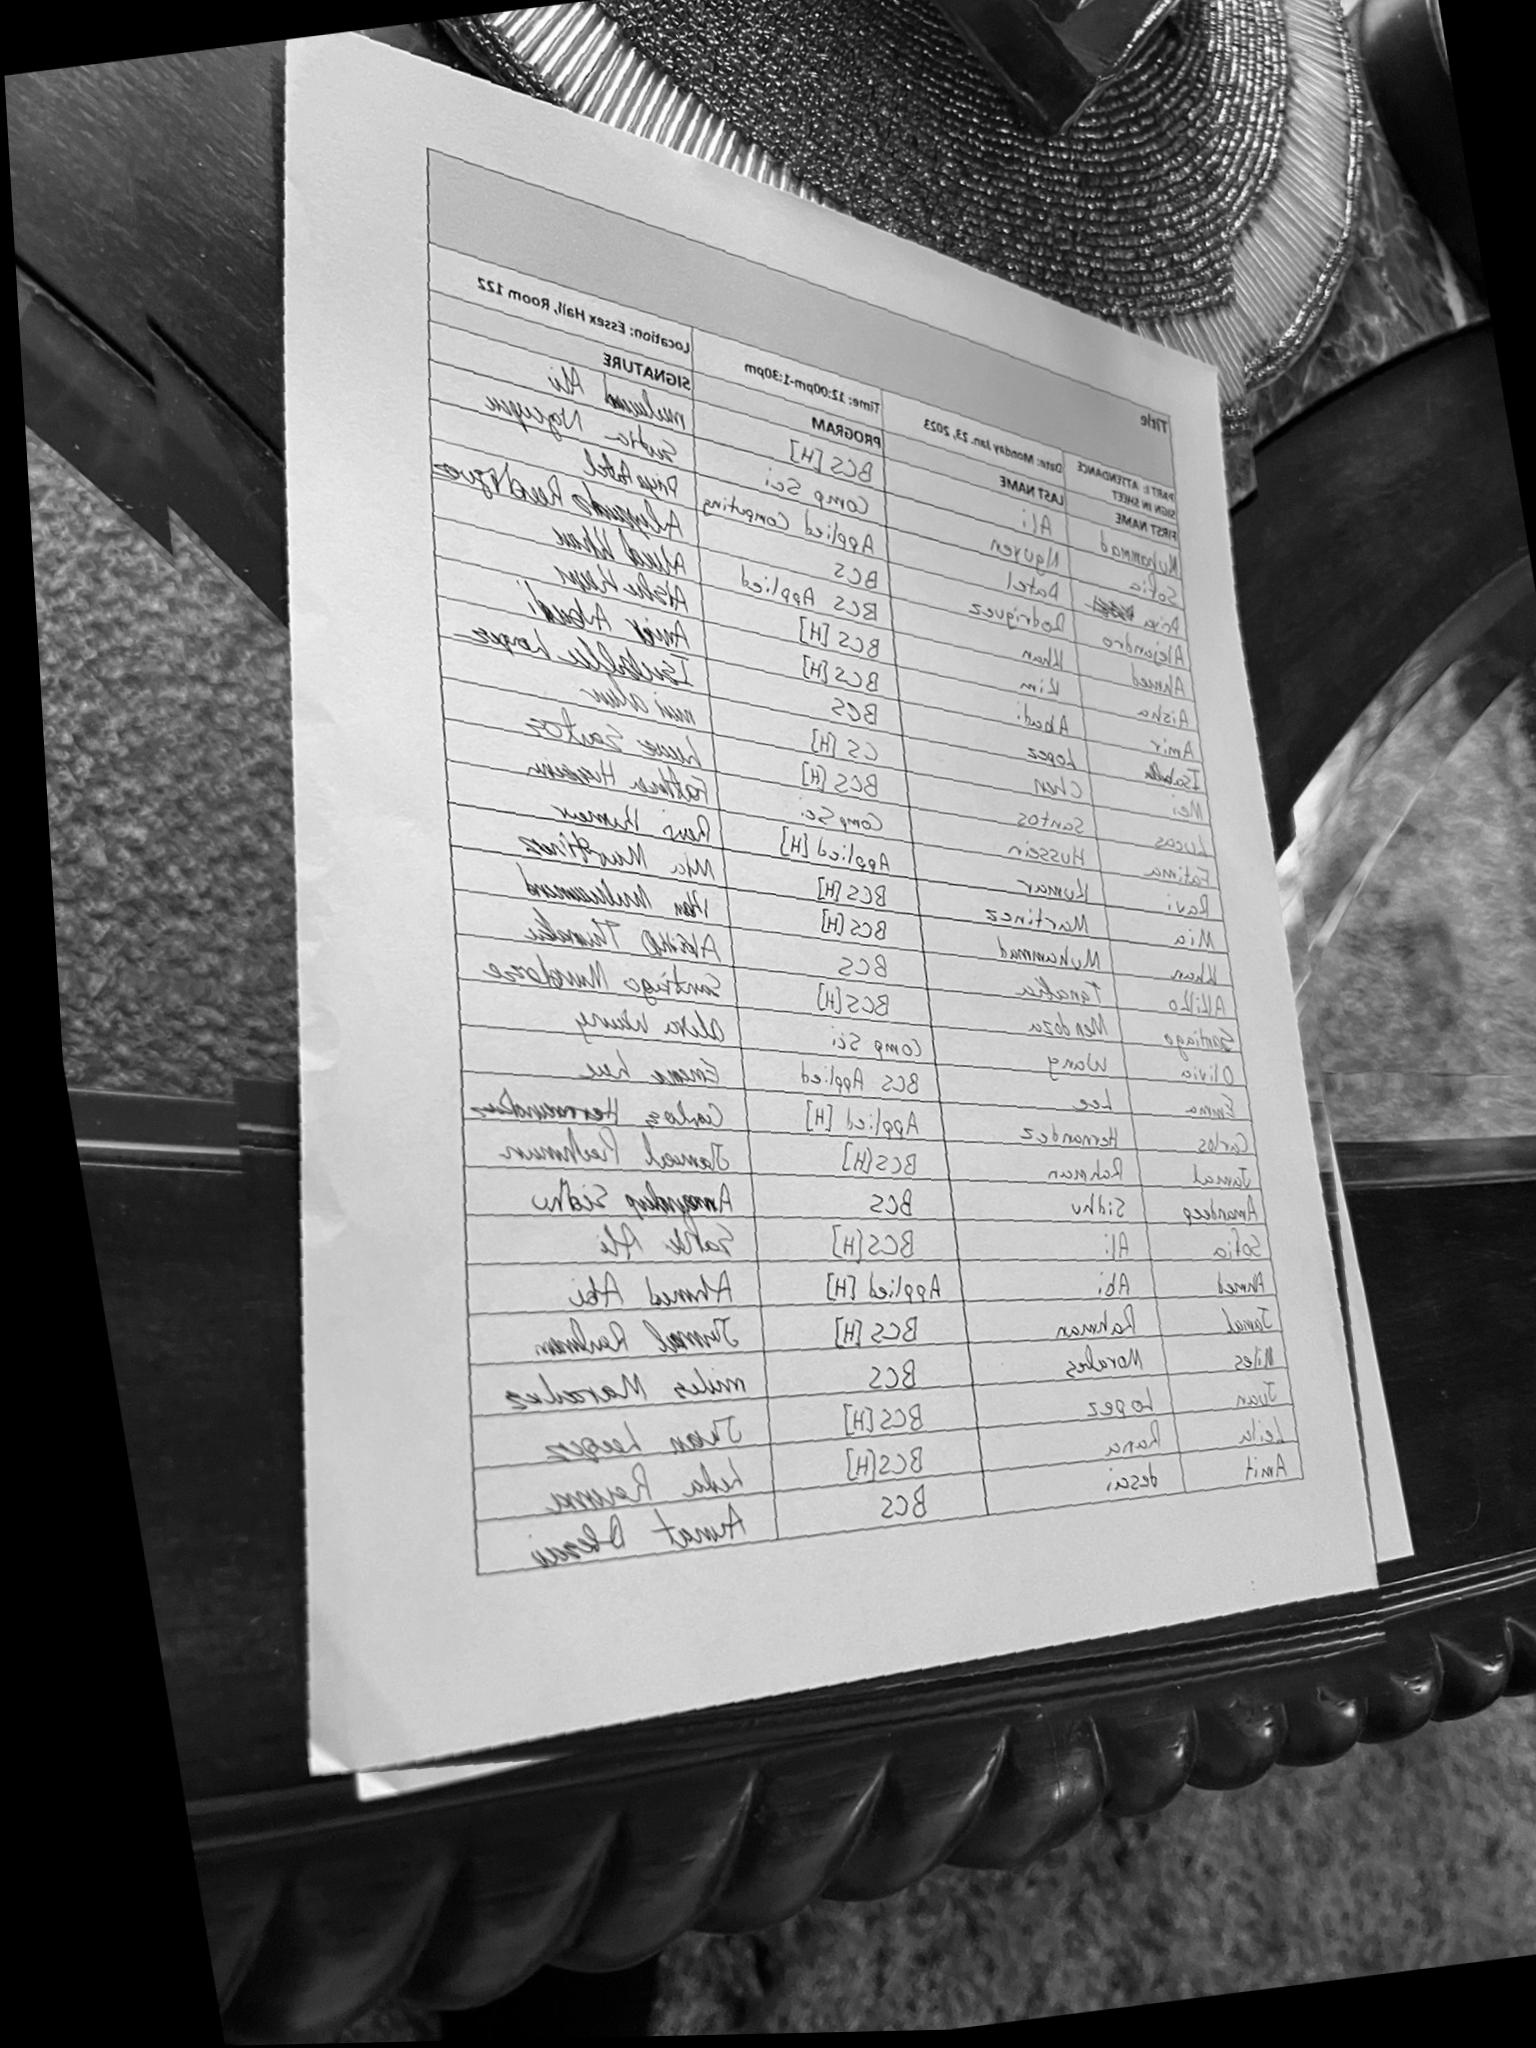 Title
PART I: ATTENDANCE SIGN IN SHEET Date: Monday Jan. 23, 2023 Time: 12:00pm-1:30pm Location: Essex Hall, Room 122
FIRST NAME LAST NAME PROGRAM SIGNATURE
Muhammad Ali BCS [H] Ali
Sofia Nguyen Comp Sci Nguyen
Priya Patel Applied Computing Priya Patel
Alejandro Rodriguez BCS
Ahmed Khan BCS Applied Ahmed Khan
Aisha Kim BCS [H]
Amir Abadi BCS [H] Amir Abadi
Isabella Lopez BCS Isabella Lopez
Mei Chen CS [H]
Lucas Santos BCS [H] Santos
Fatima Hussein Comp Sci Fatima Hussein
Ravi Kumar Applied [H] Ravi Kumar
Mia Martinez BCS [H] Mia Martinez
Khan Muhammad BCS [H] Khan Muhammad
Akiko Tanaka BCS
Santiago Mendoza BCS[H] Santiago
Olivia Wang Comp Sci Wang
Emma Lee BCS Applied Emma Lee
Carlos Hernandez Applied [H] Carlos Hernandez
Jamal Rahman BCS[H] Jamal Rahman
Amandeep Sidhu BCS Amandeep Sidhu
Sofia Ali BCS[H] Ali
Ahmed Abi Applied [H] Ahmed Abi
Jamal Rahman BCS [H] Jamal Rahman
Miles Morales BCS miles
Juan Lopez BCS[H] Juan
Leila Rana BCS[H]
Amit desai BCS Desai